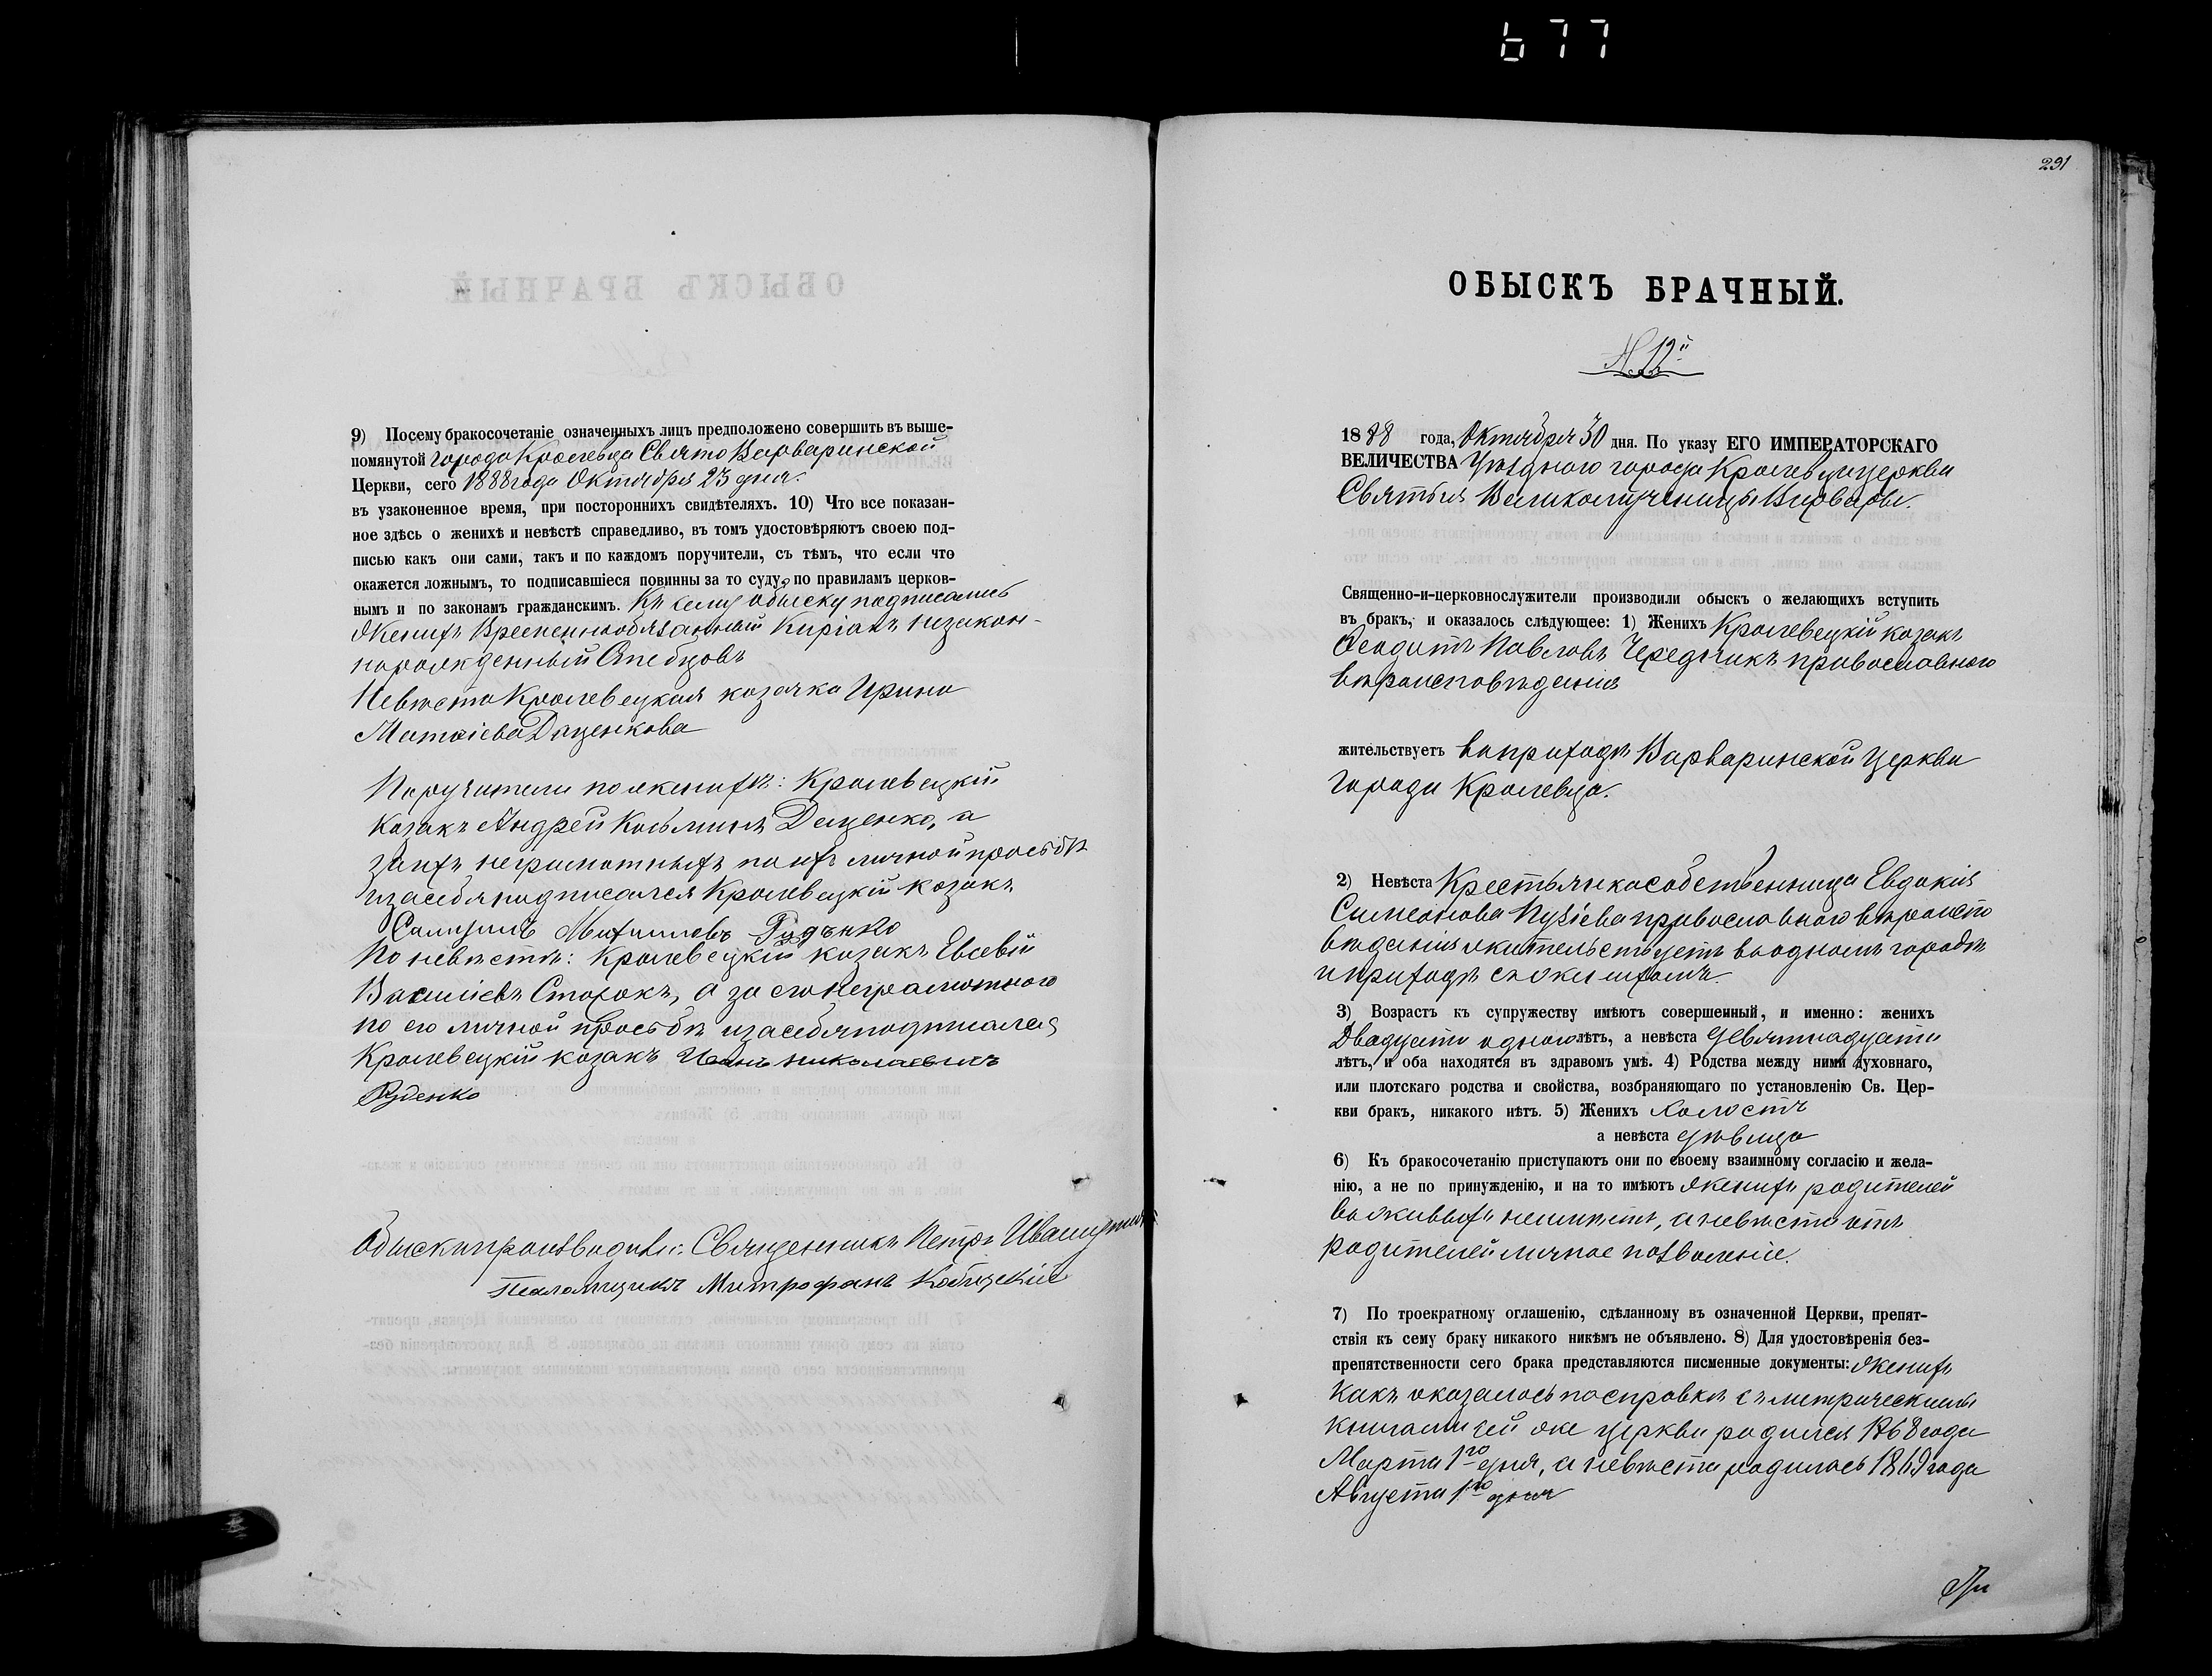 677
9) Посему бракосочетаніе означенныхъ лицъ предположено совершить въ выше-
помянутой города Кролевца Свято Варваринской
Церкви, сего 1888 года Октября 23 дня.
въ узаконенное время, при постороннихъ свидѣтеляхъ. 10) Что все показан-
ное здѣсь о женихѣ и невѣстѣ справедливо, въ томъ удостовѣряютъ своею под-
писью какъ они сами, такъ и по каждомъ поручители, съ тѣмъ, что если что
окажется ложнымъ, то подписавшіеся повинны за то суду, по правиламъ церков-
нымъ и по законамъ гражданскимъ. Къ сему обыску подписались
Женихъ Временнообязанный Киріакъ незакон-
норожденный
Невѣста Кролевецкая козачка Ирина
Матѳіева Даценкова
Поручители по женихѣ: Кролевецкій
козакъ Андрей Козьминъ Даценко, а
за нихъ неграмотныхъ по ихъ личной просьбѣ
и за себя подписался Кролевецкій козакъ
Михаиловъ Рудѣнко
По невѣстѣ: Кролевецкій козакъ Евсевій
Василіевъ Сторожъ, а за его неграмотного
по его личной просьбѣ и за себя подписался
Кролевецкій козакъ Иванъ Николаевичъ
Руденко
Обыскъ производили: Священникъ Петръ
Псаломщикъ Митрофанъ
291
ОБЫСКЪ БРАЧНЫЙ.
№ 12й
1888 года, Октября 30 дня. По указу ЕГО ИМПЕРАТОРСКАГО
ВЕЛИЧЕСТВА Уѣзднаго города Кролевца церкви
Святыя Великомученицы Варвары.
Священно-и-церковнослужители производили обыскъ о желающихъ вступить
въ бракъ, и оказалось слѣдующее: 1) Женихъ Кролевецкій козакъ
Ѳеодотъ Павловъ Чередникъ православного
вѣроисповѣданія
жительствуетъ въ приходѣ Варваринской Церкви
города Кролевца.
2) Невѣста Крестьянка собственница Евдокія
Симеонова Пузіева православного вѣроиспо
вѣданія жительствуетъ въ одномъ городѣ
и приходѣ съ женихомъ.
3) Возрастъ къ супружеству имѣютъ совершенный, и именно: женихъ
Двадцати одного лѣтъ, а невѣста девятнадцати
лѣтъ, и оба находятся въ здравомъ умѣ. 4) Родства между ними духовнаго,
или плотскаго родства и свойства, возбраняющаго по установленію Св. Цер-
кви бракъ, никакого нѣтъ. 5) Женихъ холостъ
а невѣста дѣвица
6) Къ бракосочетанію приступаютъ они по своему взаимному согласію и жела-
нію, а не по принужденію, и на то имѣютъ женихъ родителей
въ живыхъ неимѣетъ, а невѣста отъ
родителей личное позволеніе.
7) По троекратному оглашенію, сдѣланному въ означенной Церкви, препят-
ствія къ сему браку никакого никѣмъ не объявлено. 8) Для удостовѣренія без-
препятственности сего брака представляются писменные документы: женихъ
какъ оказалось по справкѣ съ метрическими
книгами сей же церкви родился 1868 года
Марта 1го дня, а невѣста родилась 1869 года
Августа 1го дня